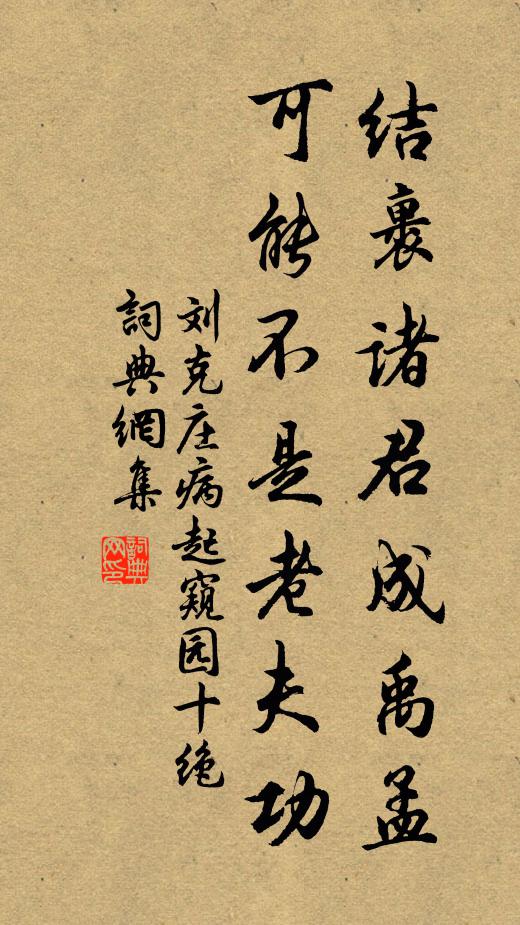 结裹诸君成禹孟
可能不是老夫功
刘克庄病起窥园十绝
詞典網集
詞典网印